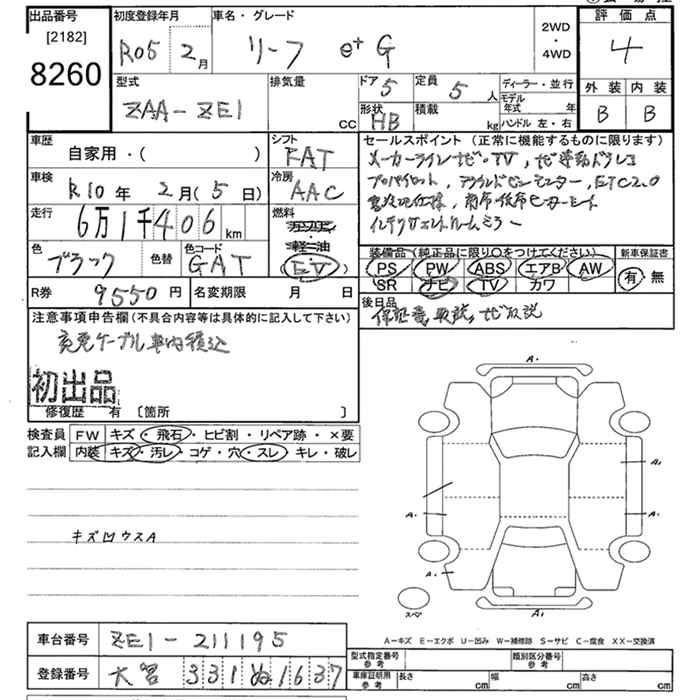 出品番号
[2182]
8260
初度登録年月
R05 2月
車名・グレード
リーフ e+ G
2WD
・
4WD
評価点
4
外装 内装
B B
型式
ZAA-ZE1
排気量
CC
ドア 5
定員 5人
形状 HB
積載 kg
ディーラー・並行
モデル年式 年
ハンドル 左・右
車歴
自家用・( )
シフト
FAT
車検
R10年 2月(5日)
冷房
AAC
走行
6万1千406km
燃料
ガソリン
・軽油
EV
色
ブラック
色替
色コード
GAT
R券 9550円
名変期限 月 日
セールスポイント(正常に機能するものに限ります)
メーカーラインナビ・TV, ナビ連動ドラレコ
プロパイロット, アラウンドビューモニター, ETC2.0
寒冷地仕様, 前席・後席ヒーターシート
インテリジェントルームミラー
装備品(純正品に限り○をつけてください)
PS PW ABS エアB AW
SR ナビ TV カワ
新車保証書
有・無
後日品
保証書, 取説, ナビ取説
注意事項申告欄(不具合内容等は具体的に記入して下さい)
充電ケーブル車内積込
初出品
修復歴 有 [箇所 ]
検査員記入欄
FW キズ・飛石・ヒビ割・リペア跡・×要
内装 キズ・汚レ・コゲ・穴・スレ・キレ・破レ
キズ凹ウスA
A・
A1
A・
A・
A1
A・
スペア
A1
A-キズ E-エクボ U-凹み W-補修跡 S-サビ C-腐食 XX-交換済
車台番号 ZE1-211195
登録番号 331 ぬ 1637
型式指定番号 参考
類別区分番号 参考
車庫証明用 参考 長さ cm 幅 cm 高さ cm